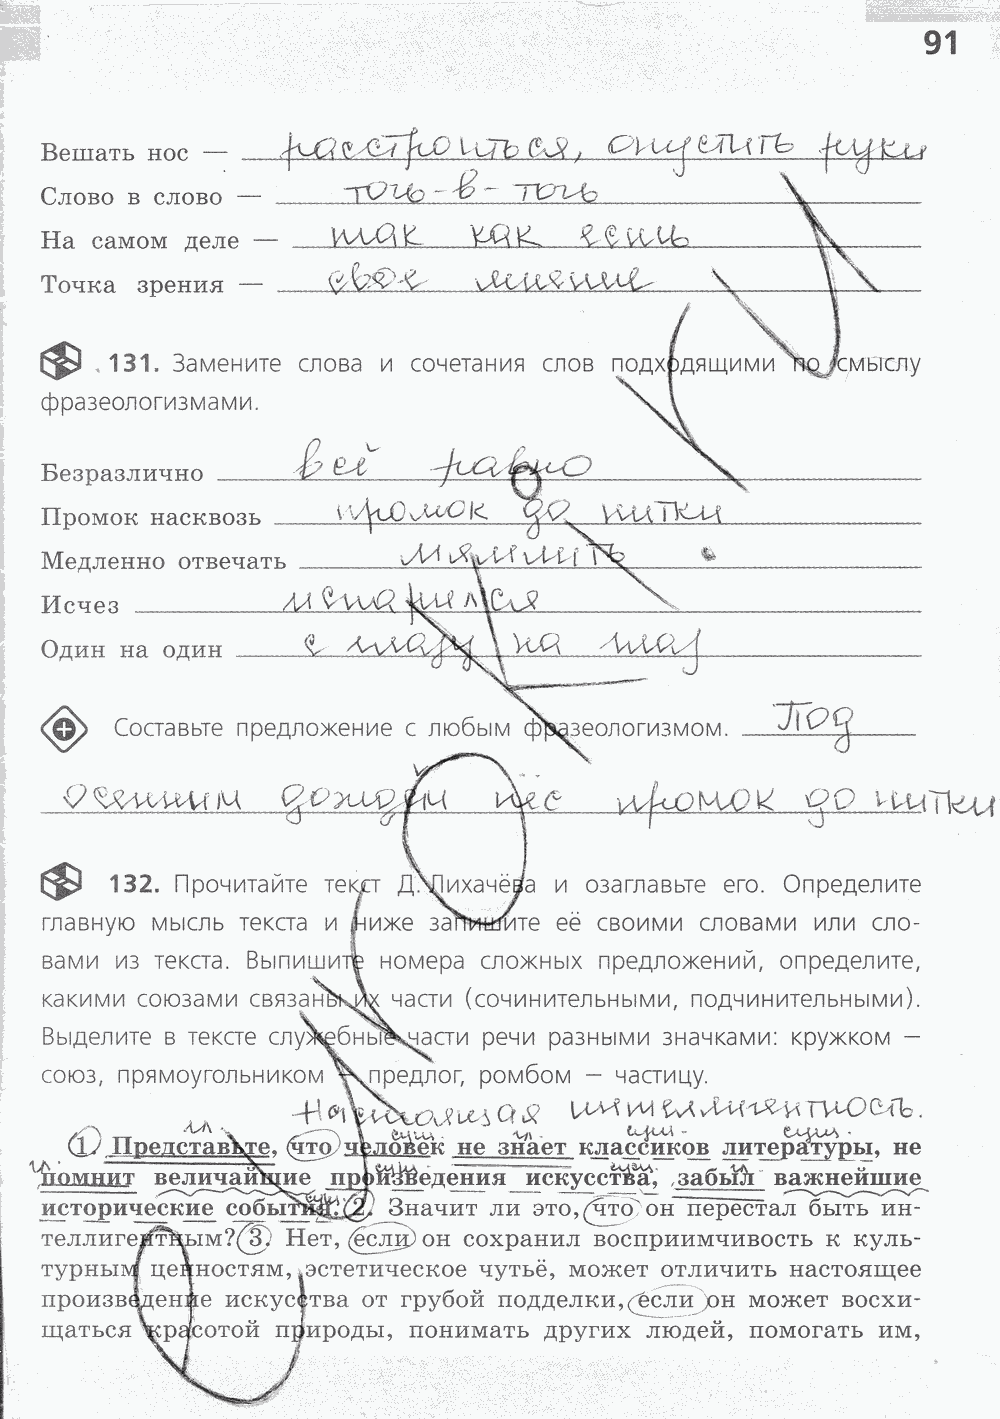 91
Вешать нос — расстроиться, опустить руки
Слово в слово — точь-в-точь
На самом деле — так как есть
Точка зрения — своё мнение
131. Замените слова и сочетания слов подходящими по смыслу
фразеологизмами.
Безразлично всё равно
Промок насквозь промок до нитки
Медленно отвечать мямлить
Исчез испарился
Один на один с глазу на глаз
Составьте предложение с любым фразеологизмом. Под
осенним дождём пёс промок до нитки
132. Прочитайте текст Д. Лихачёва и озаглавьте его. Определите
главную мысль текста и ниже запишите её своими словами или сло-
вами из текста. Выпишите номера сложных предложений, определите,
какими союзами связаны их части (сочинительными, подчинительными).
Выделите в тексте служебные части речи разными значками: кружком —
союз, прямоугольником — предлог, ромбом — частицу.
Настоящая интеллигентность.
гл. сущ. гл. сущ. сущ.
1. Представьте, что человек не знает классиков литературы, не
гл. сущ. сущ. гл.
помнит величайшие произведения искусства, забыл важнейшие
сущ.
исторические события. 2. Значит ли это, что он перестал быть ин-
теллигентным? 3. Нет, если он сохранил восприимчивость к куль-
турным ценностям, эстетическое чутьё, может отличить настоящее
произведение искусства от грубой подделки, если он может восхи-
щаться красотой природы, понимать других людей, помогать им,